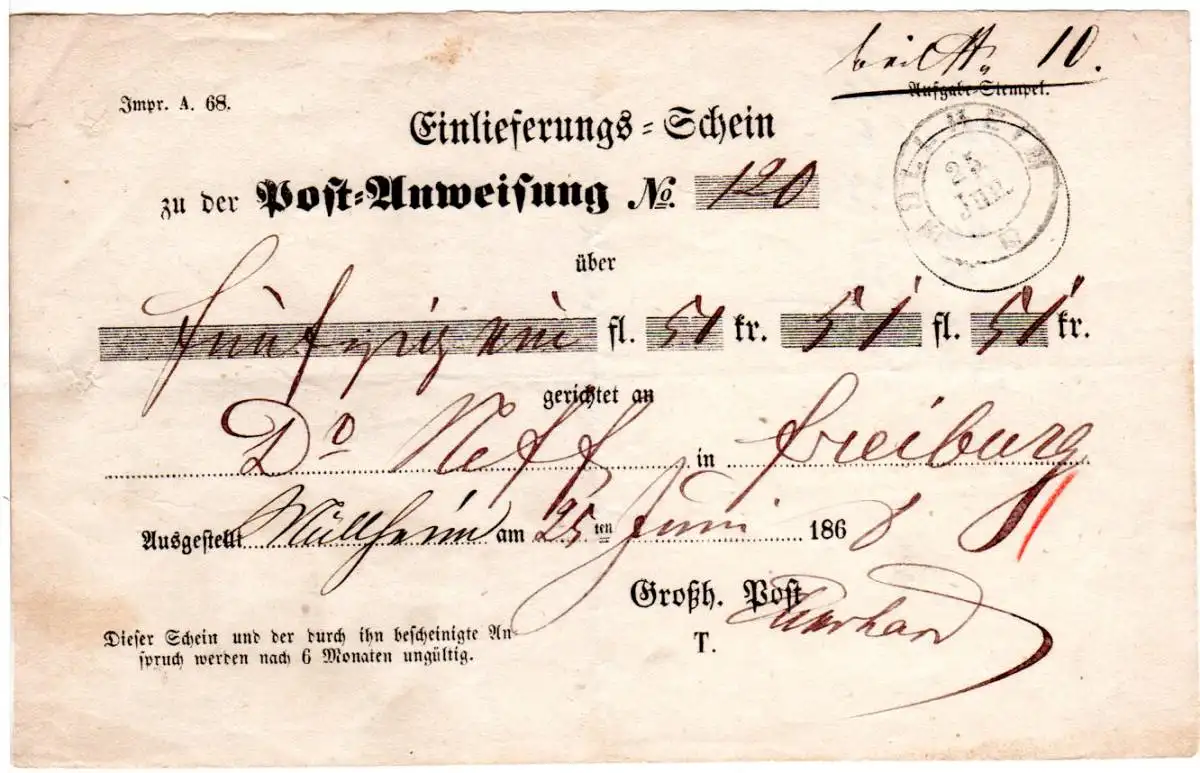 10.
Impr. A. 68.
Aufgabe-Stempel.
Einlieferungs-Schein
MÜLLHEIM
25
JUN.
zu der Post-Anweisung No. 120
über
fünfzig ein fl. 51 kr. 51 fl. 51 kr.
gerichtet an
Dr Neff in Freiburg
Ausgestellt Müllheim am 25ten Juni 1868
Großh. Post
T.
Dieser Schein und der durch ihn bescheinigte An-
spruch werden nach 6 Monaten ungültig.